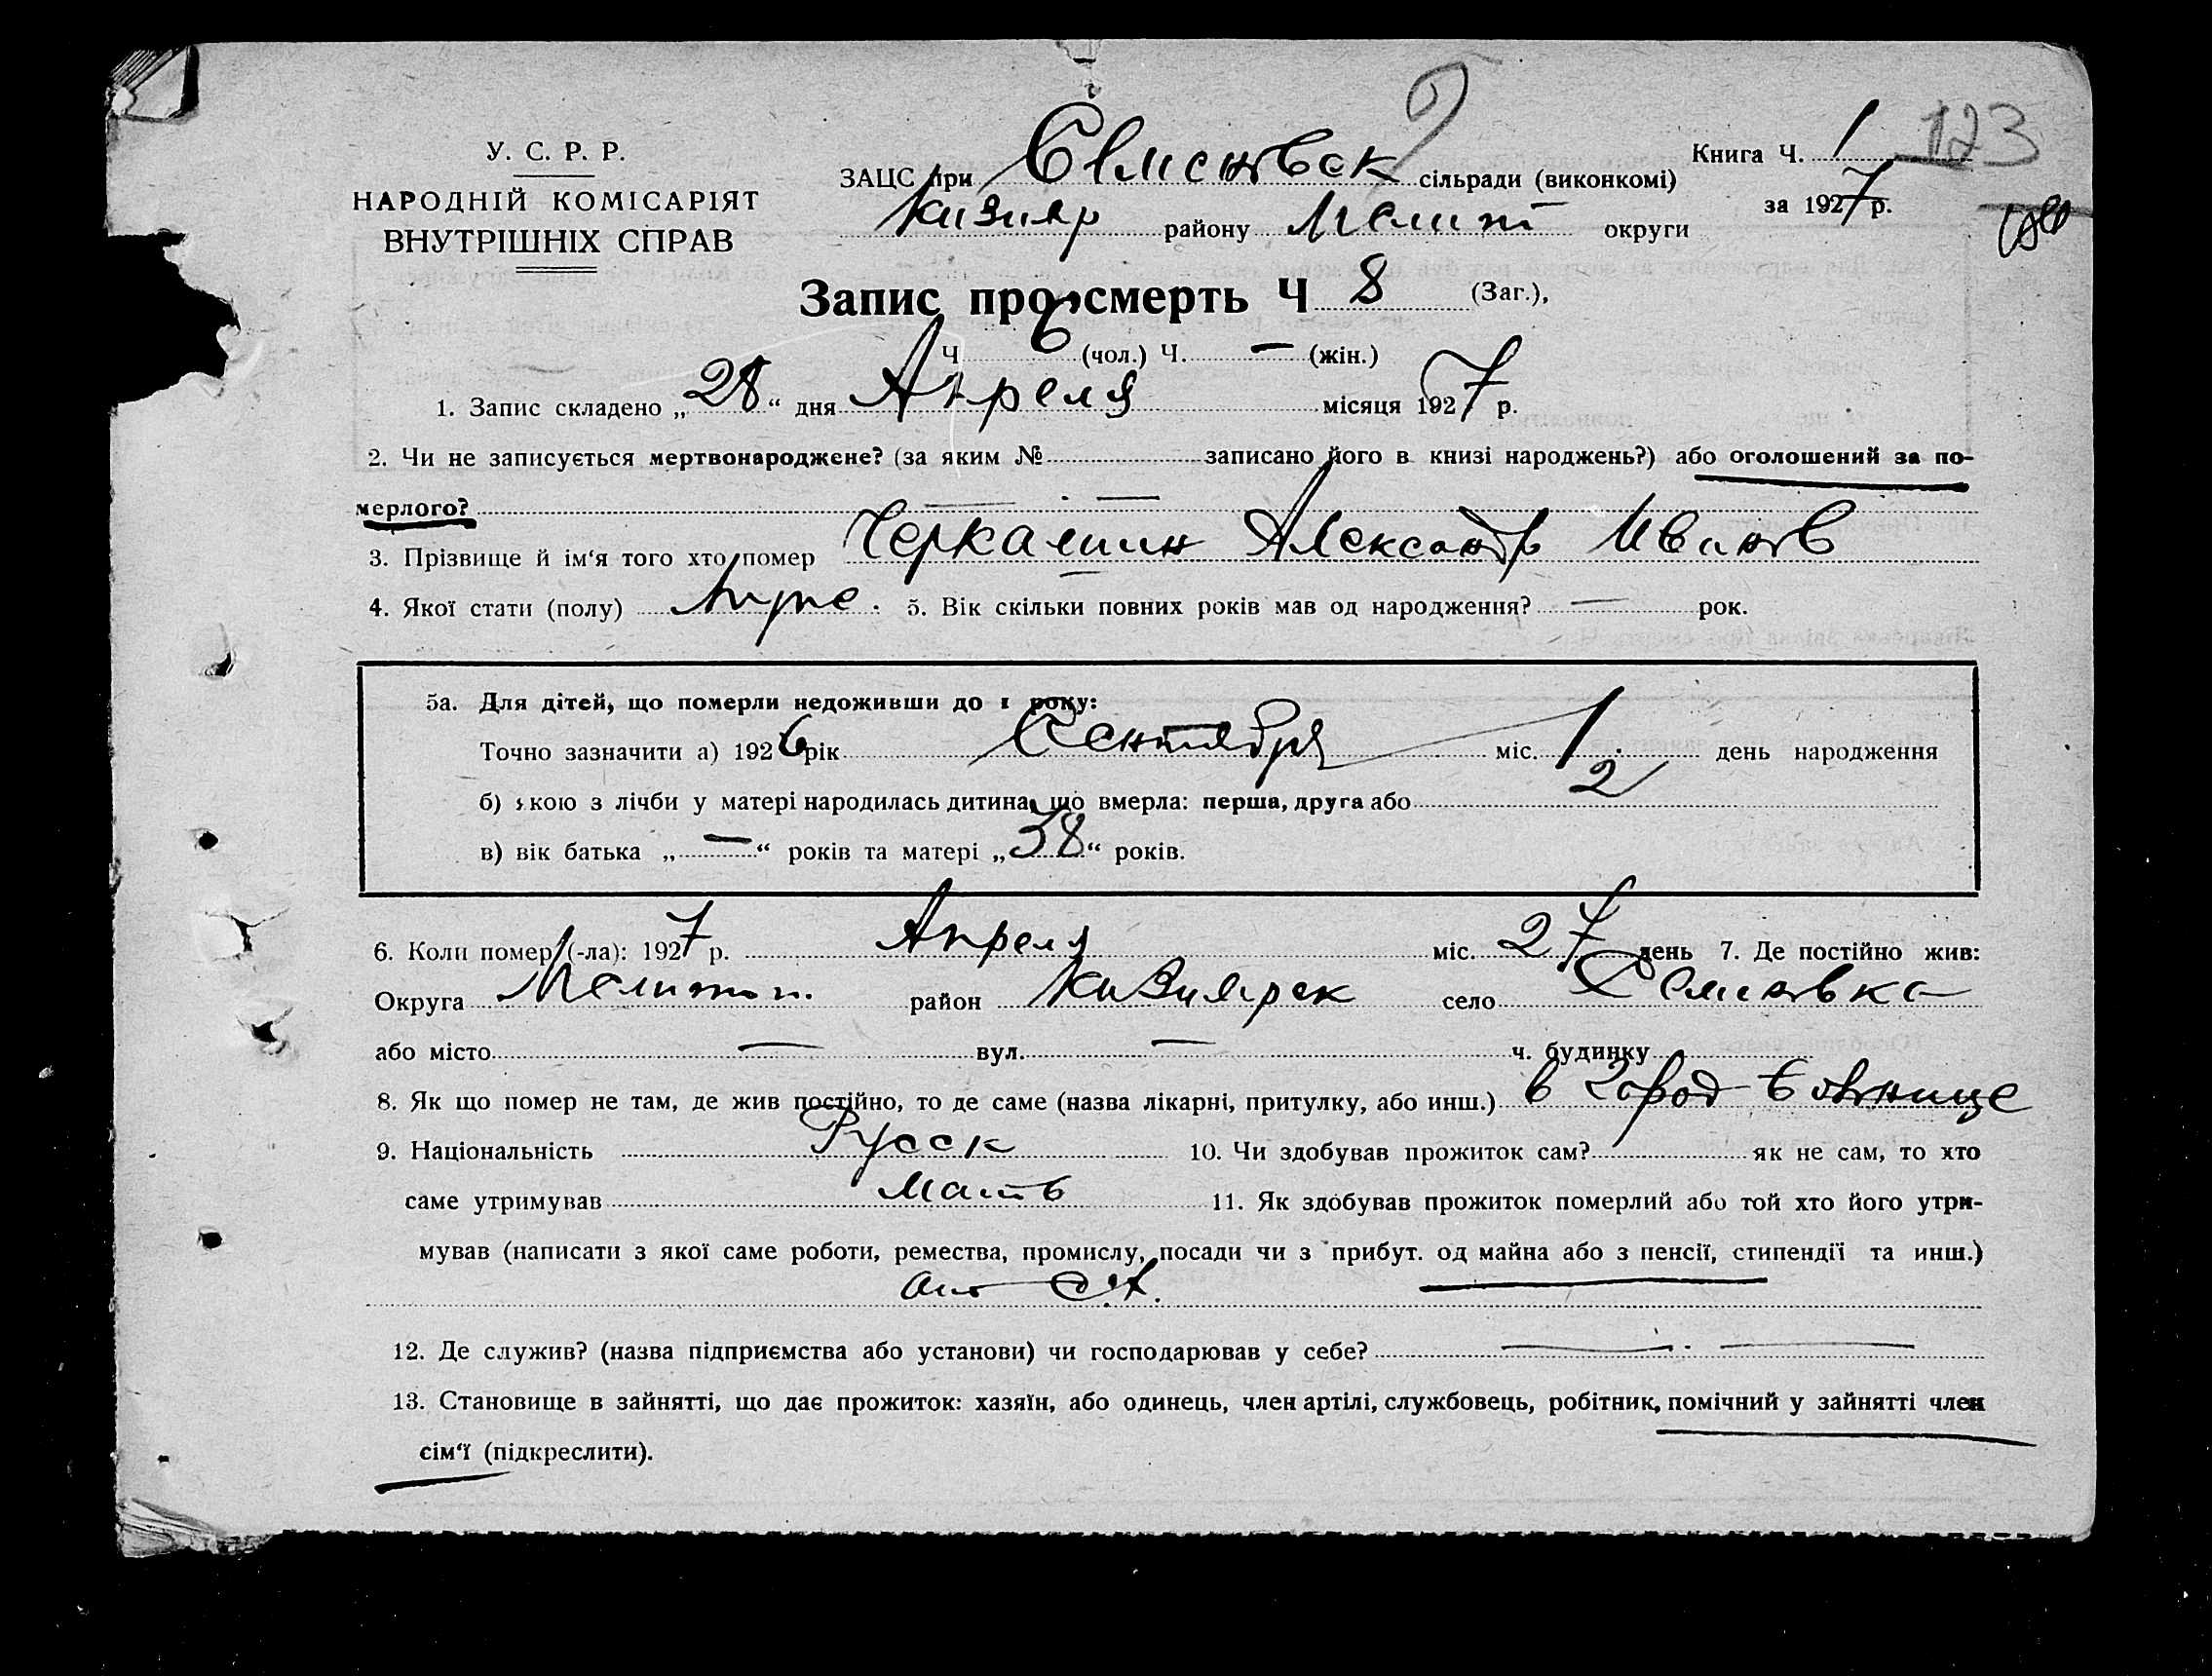 У. С. Р. Р.
НАРОДНІЙ КОМІСАРІЯТ
ВНУТРІШНІХ СПРАВ
ЗАЦС при Семеновск сільради (виконкомі)
Кизияр району Мелит округи
Книга Ч. 1 123
за 1927 р.
Запис про смерть Ч 8 (Заг.),
Ч 6 (чол.) Ч. — (жін.)
1. Запис складено „28“ дня Апреля місяця 1927 р.
2. Чи не записується мертвонароджене? (за яким № записано його в книзі народжень?) або оголошений за по-
мерлого? — —
3. Прізвище й ім‘я того хто помер Черкашин Александр Иванов
4. Якої стати (полу) Муже. 5. Вік скільки повних років мав од народження? — рок.
5а. Для дітей, що померли недоживши до 1 року:
Точно зазначити а) 1926 рік Сентября міс. 1 день народження
б) якою з лічби у матері народилась дитина, що вмерла: перша, друга або 2
в) вік батька „—“ років та матері „38“ років.
6. Коли помер (-ла): 1927 р. Апреля міс. 27 день 7. Де постійно жив:
Округа Мелитоп. район Кизиярск село Семеновка
або місто — вул. — ч. будинку
8. Як що помер не там, де жив постійно, то де саме (назва лікарні, притулку, або инш.) в Город больнице
9. Національність Русск 10. Чи здобував прожиток сам? як не сам, то хто
саме утримував мать 11. Як здобував прожиток померлий або той хто його утри-
мував (написати з якої саме роботи, ремества, промислу, посади чи з прибут. од майна або з пенсії, стипендії та инш.)
от с.х.
12. Де служив? (назва підприємства або установи) чи господарював у себе? — —
13. Становище в зайнятті, що дає прожиток: хазяїн, або одинець, член артілі, службовець, робітник, помічний у зайнятті член
сім‘ї (підкреслити).